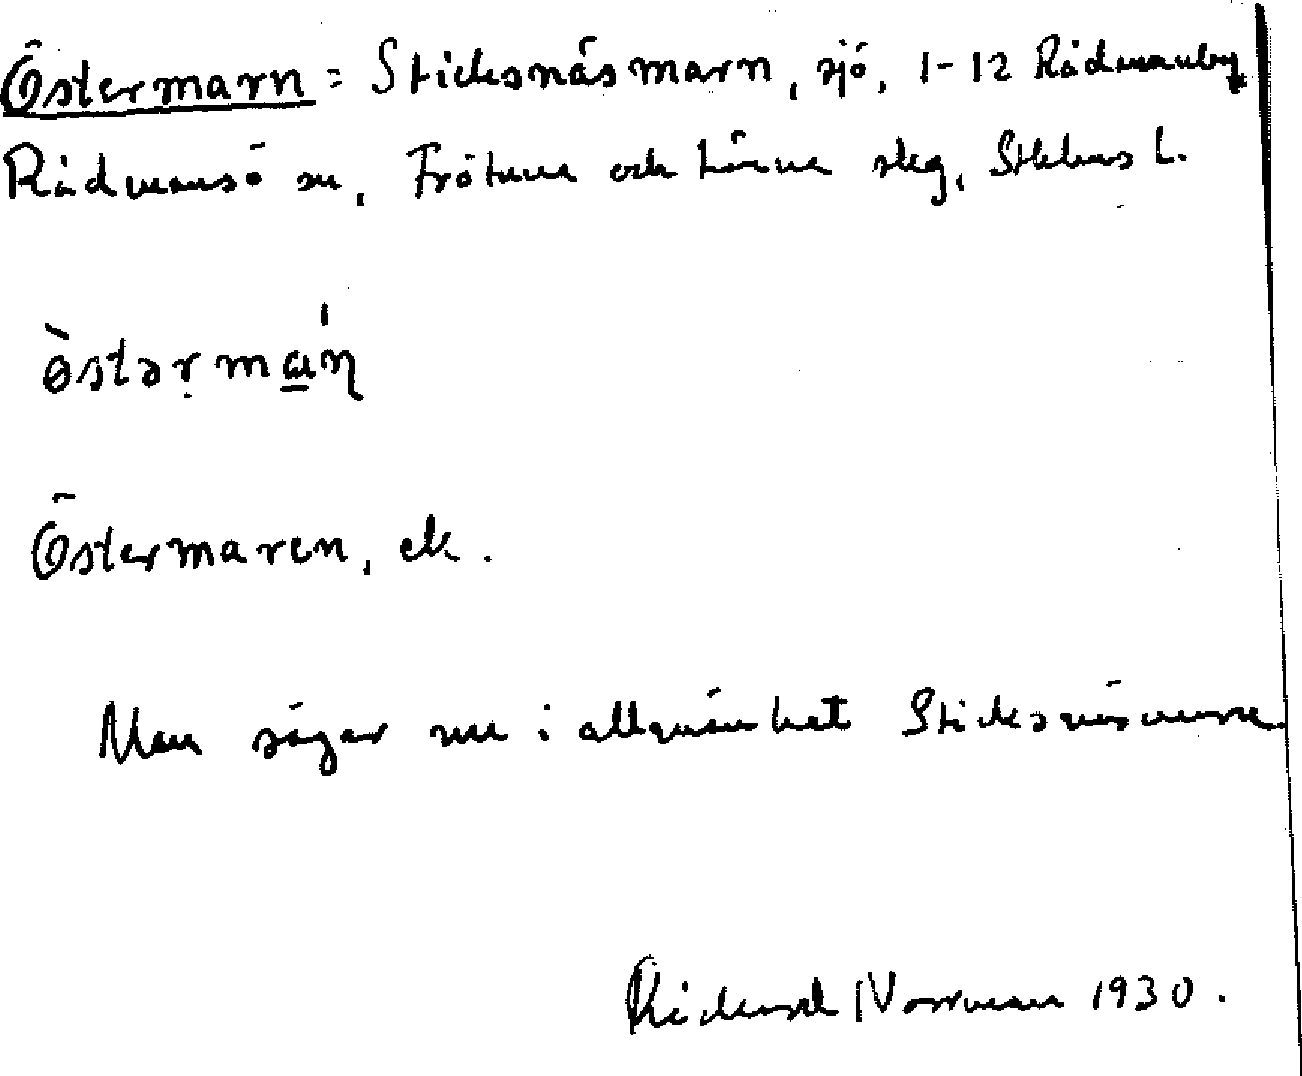 Östermarn = Sticksnäsmarn, sjö, 1-12 Rådmanby
Rådmansö sn, Frötuna och Länna skg, Sthlms l.
ö̀stərma̲ŕn
Östermaren, ek.
Man säger nu i allmänhet Sticksnäsmarn
Norrman 1930.